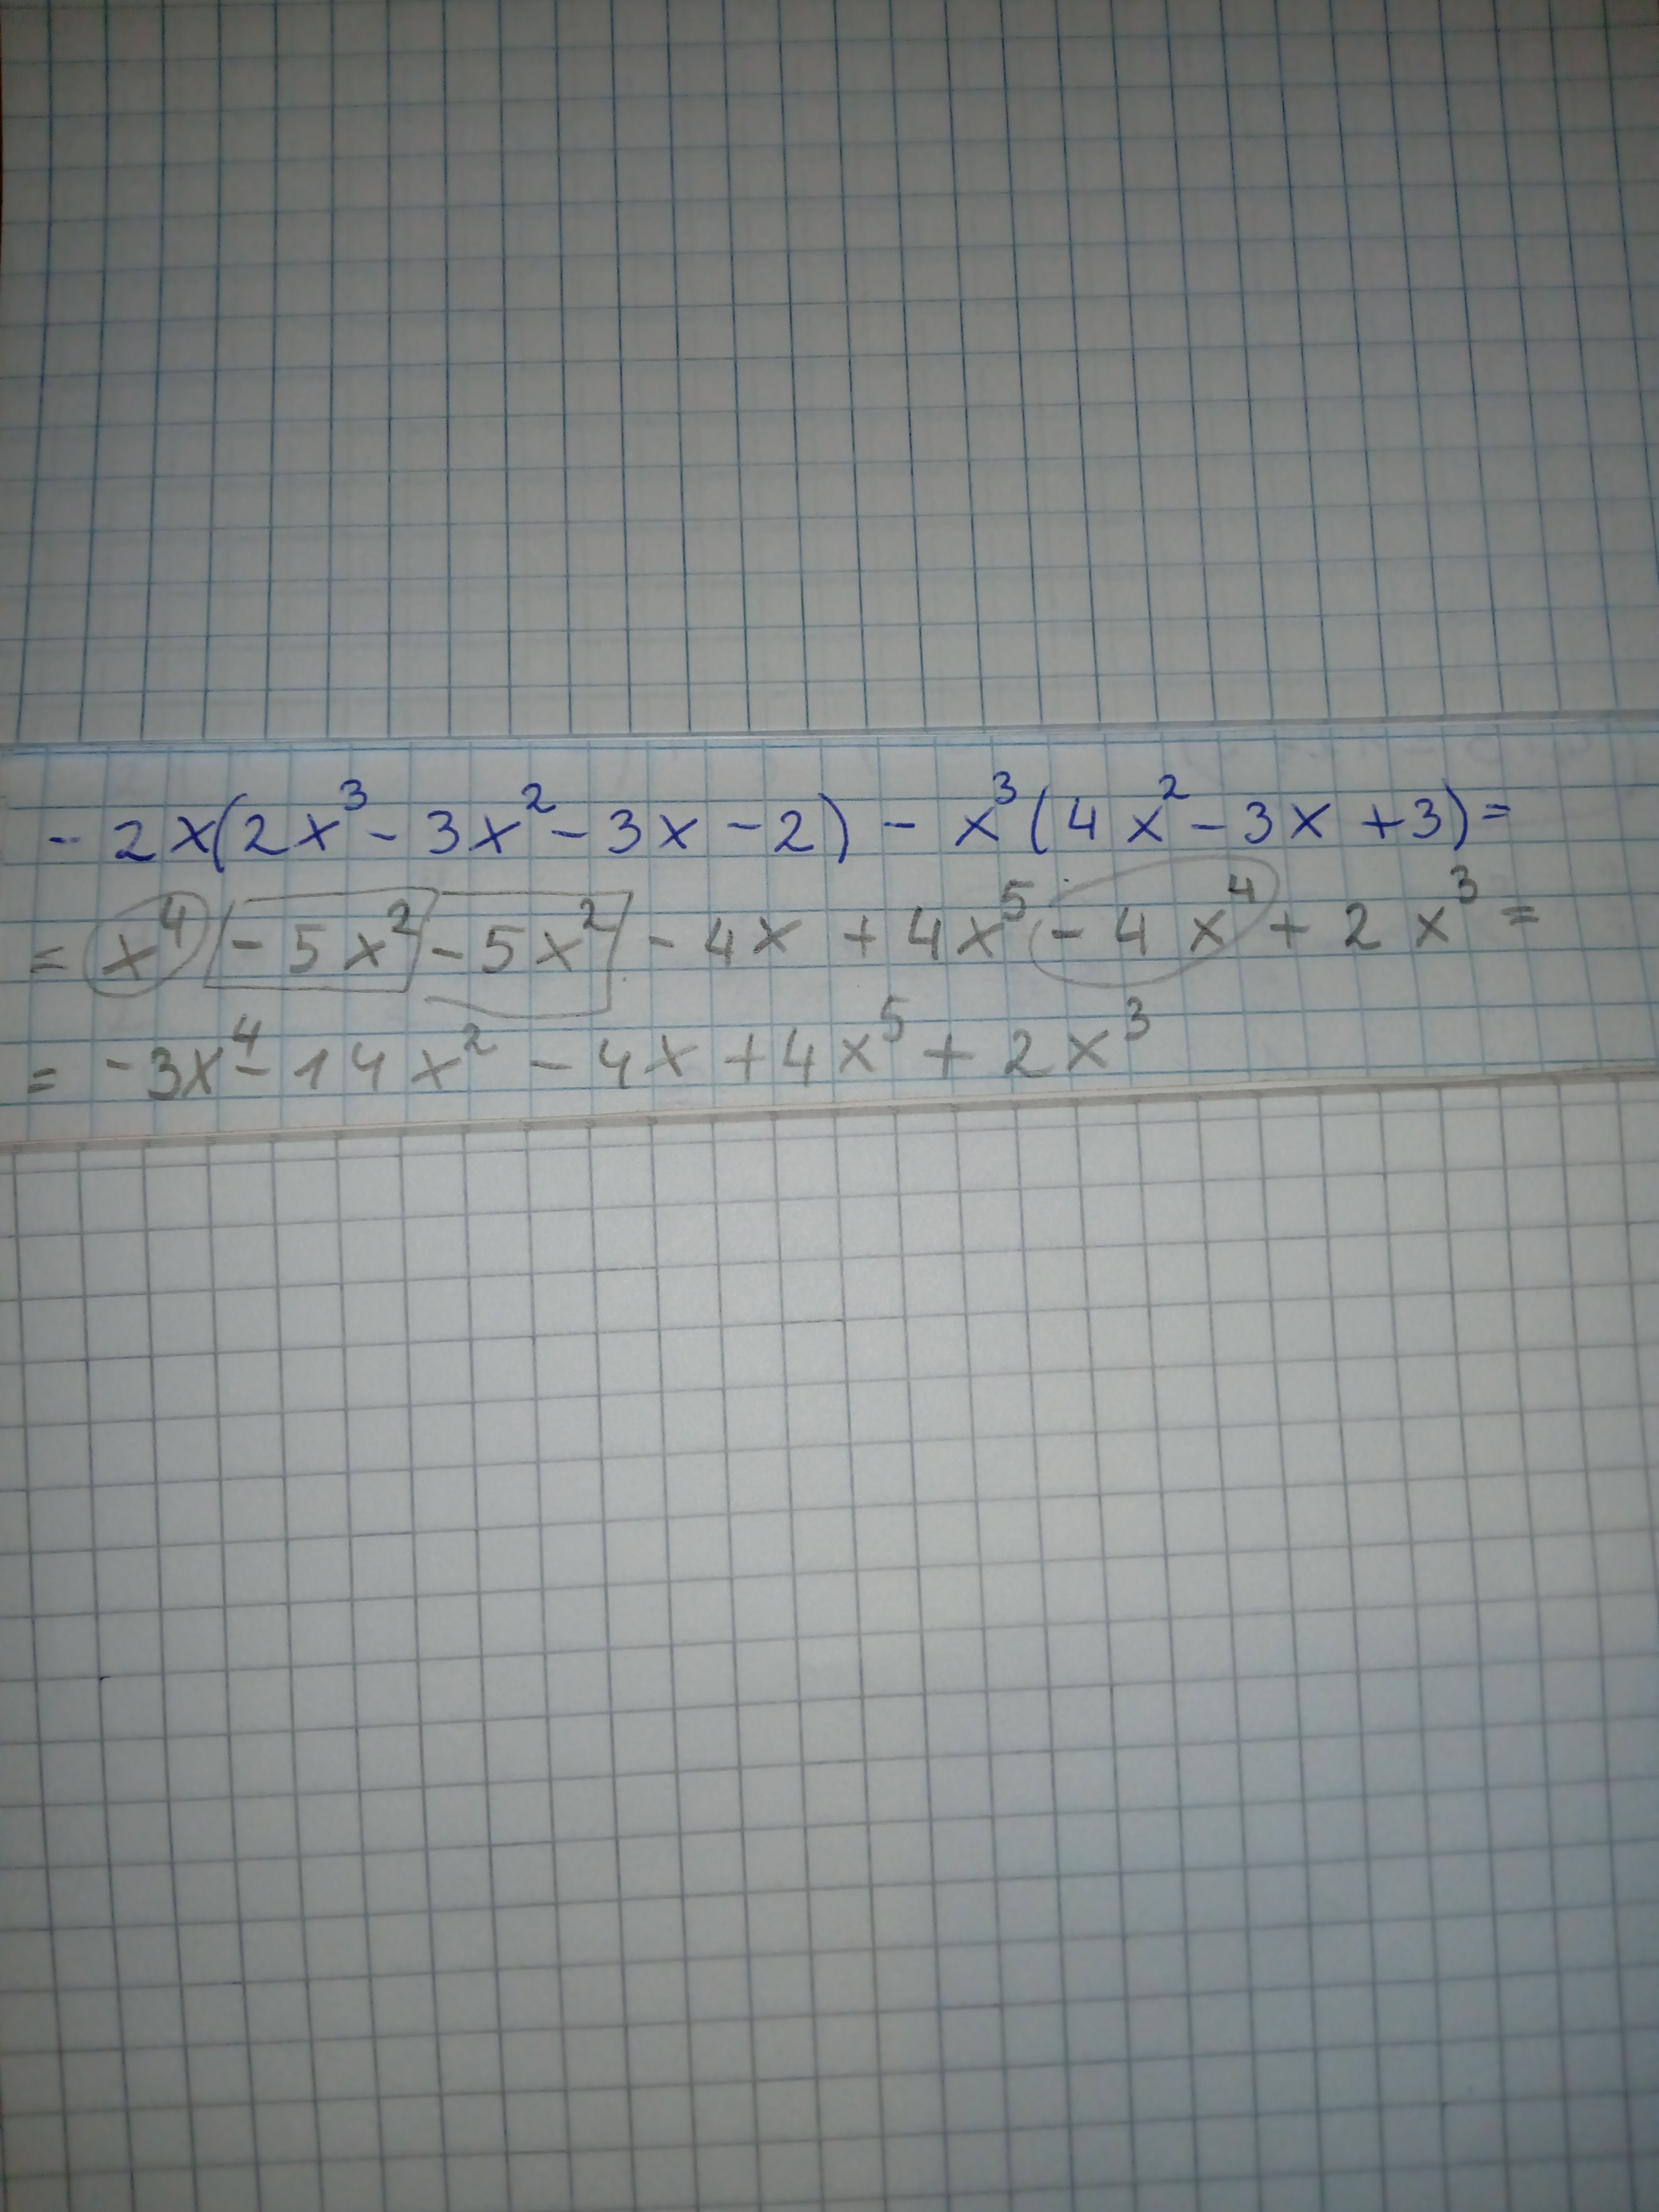 - 2x(2x³ - 3x² - 3x - 2) - x³(4x² - 3x + 3) =
= x⁴ - 5x² - 5x² - 4x + 4x⁵ - 4x⁴ + 2x³ =
= -3x⁴ - 14x² - 4x + 4x⁵ + 2x³